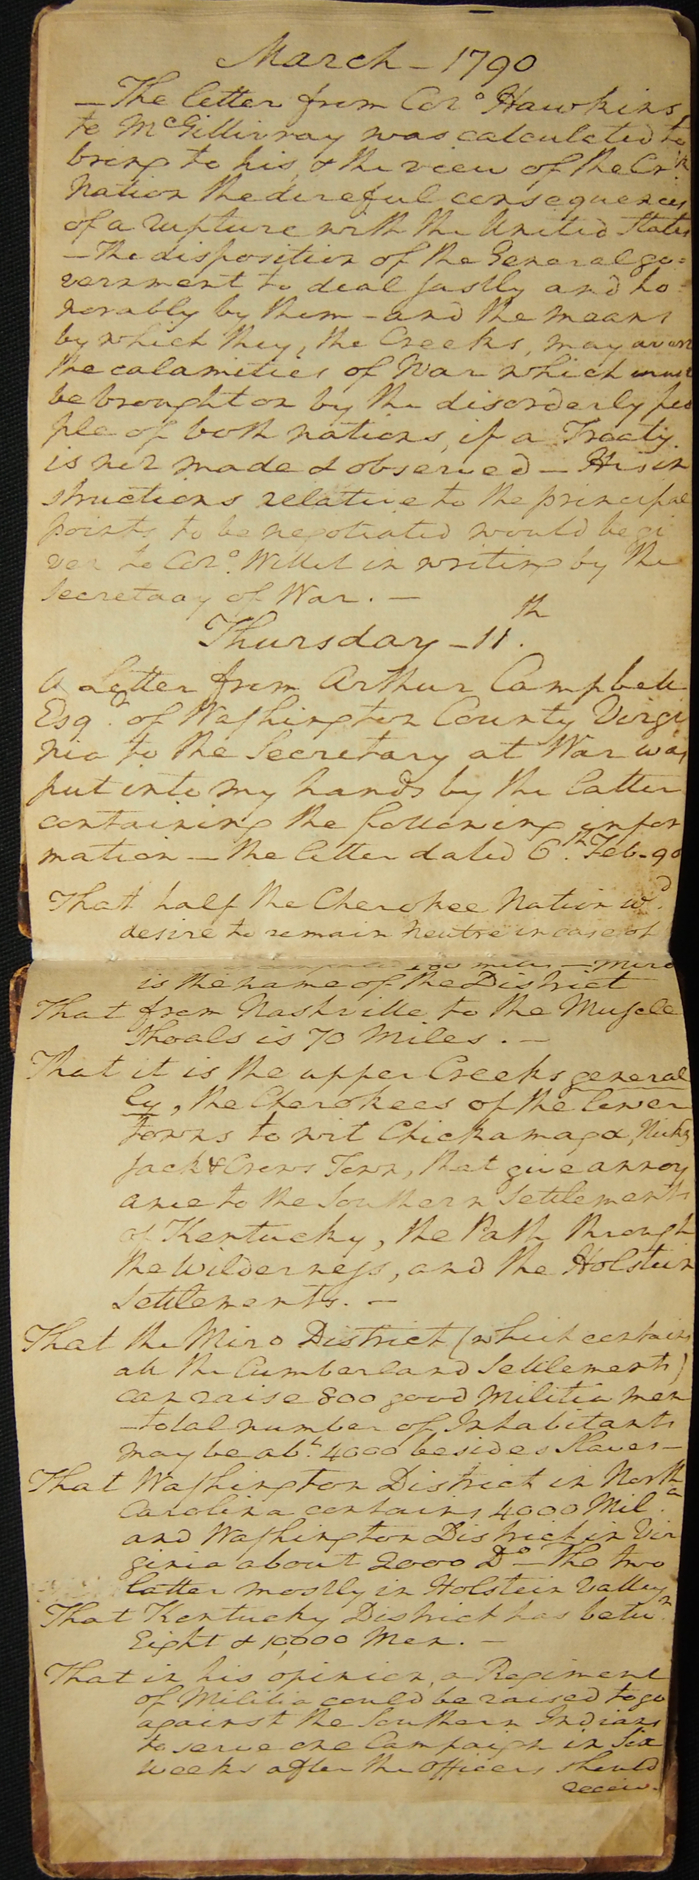 March - 1790
- The letter from Colo. Hawkins
to McGillivray was calculated to
bring to his, & the view of the Crk
Nation the direful consequences
of a rupture with the United States
- The disposition of the General go=
vernment to deal justly and ho-
norably by them - and the means
by which they, the Creeks, may avert
the calamities of War which must
be brought on by the disorderly peo
ple of both nations, if a Treaty
is not made & observed - His in
structions relative to the principal
points to be negotiated would be gi
ven to Colo. Willet in writing by the
Secretary of War. -
Thursday - 11.th
A Letter from Arthur Campbell
Esqr. of Washington County Virgi
nia to the Secretary at War was
put into my hands by the latter
containing the following infor
mation - the letter dated 6.th Feb-90
That half the Cherokee Nation wd.
desire to remain Neutre in case of
100 miles - Miro
is the name of the District
That from Nashville to the Muscle
Shoals is 70 Miles. -
That it is the upper Creeks general
ly, the Cherokees of the lower
towns to wit Chickamaga, Nicka
jack & Crows Town, that give annoy
ance to the Southern Settlements
of Kentucky, the Path through
the Wilderness, and the Holstein
Settlements. -
That the Miro District (which contains
all the Cumberland Settlements)
can raise 800 good Militia men
- total number of Inhabitants
may be abt. 4000 besides Slaves -
That Washington District in North
Carolina contains 4000 Mila.
and Washington District in Vir
ginia about 2000 Do - The two
latter mostly in Holstein Valley
That Kentucky District has betwn.
Eight & 10,000 Men. -
That in his opinion, a Regiment
of Militia could be raised to go
against the Southern Indians
to serve one Campaign in Six
weeks after the Officers should
receive